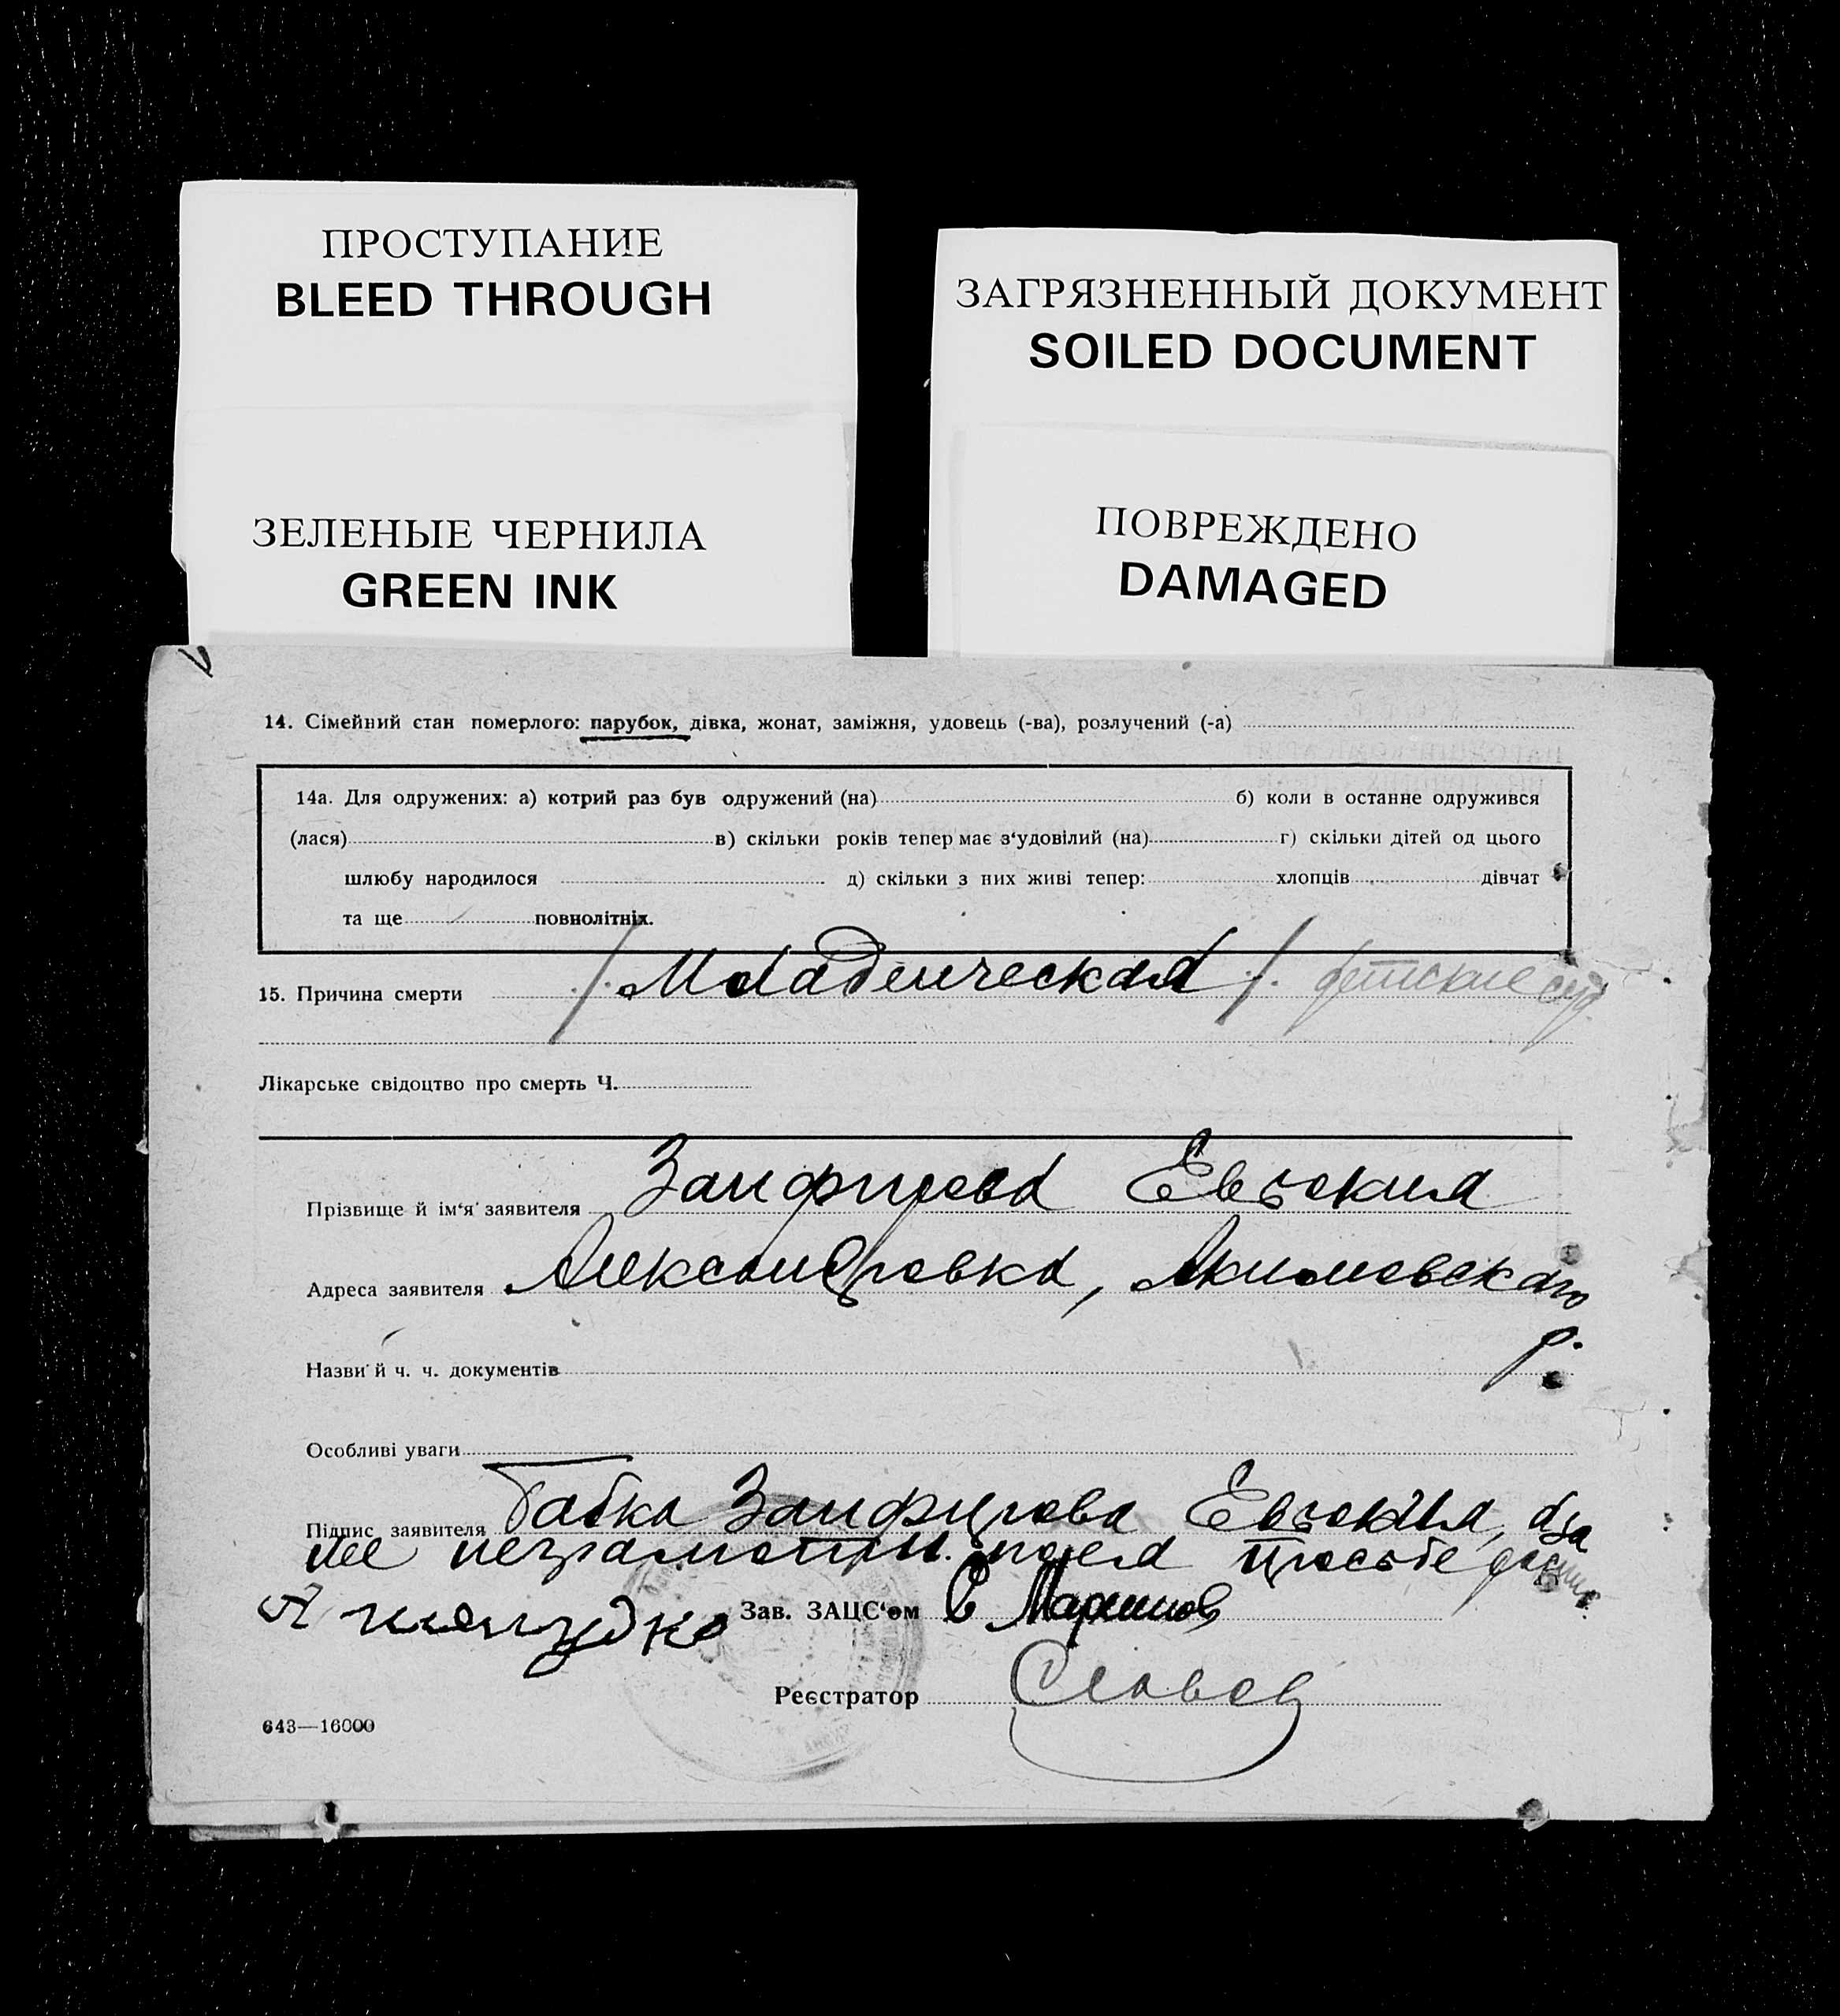 ПРОСТУПАНИЕ
BLEED THROUGH
ЗАГРЯЗНЕННЫЙ ДОКУМЕНТ
SOILED DOCUMENT
ЗЕЛЕНЫЕ ЧЕРНИЛА
GREEN INK
ПОВРЕЖДЕНО
DAMAGED
14. Сімейний стан померлого: парубок, дівка, жонат, заміжня, удовець (-ва), розлучений (-а)
14а. Для одружених: а) котрий раз був одружений (на) б) коли в останне одружився
(лася) в) скільки років тепер має з‘удовілий (на) г) скільки дітей од цього
шлюбу народилося д) скільки з них живі тепер: хлопців дівчат
та ще повнолітніх.
15. Причина смерти /Младенческая/. детские
Лікарське свідоцтво про смерть Ч.
Прізвище й ім‘я заявителя Занфирова Евдокия
Адреса заявителя Александровка, Акимовского
р.
Назви й ч. ч. документів
Особливі уваги
Підпис заявителя Бабка Занфирова Евдокия, а за
нее неграмотн. по ея просьбе
Зав. ЗАЦС‘ом
Реєстратор
643—16000